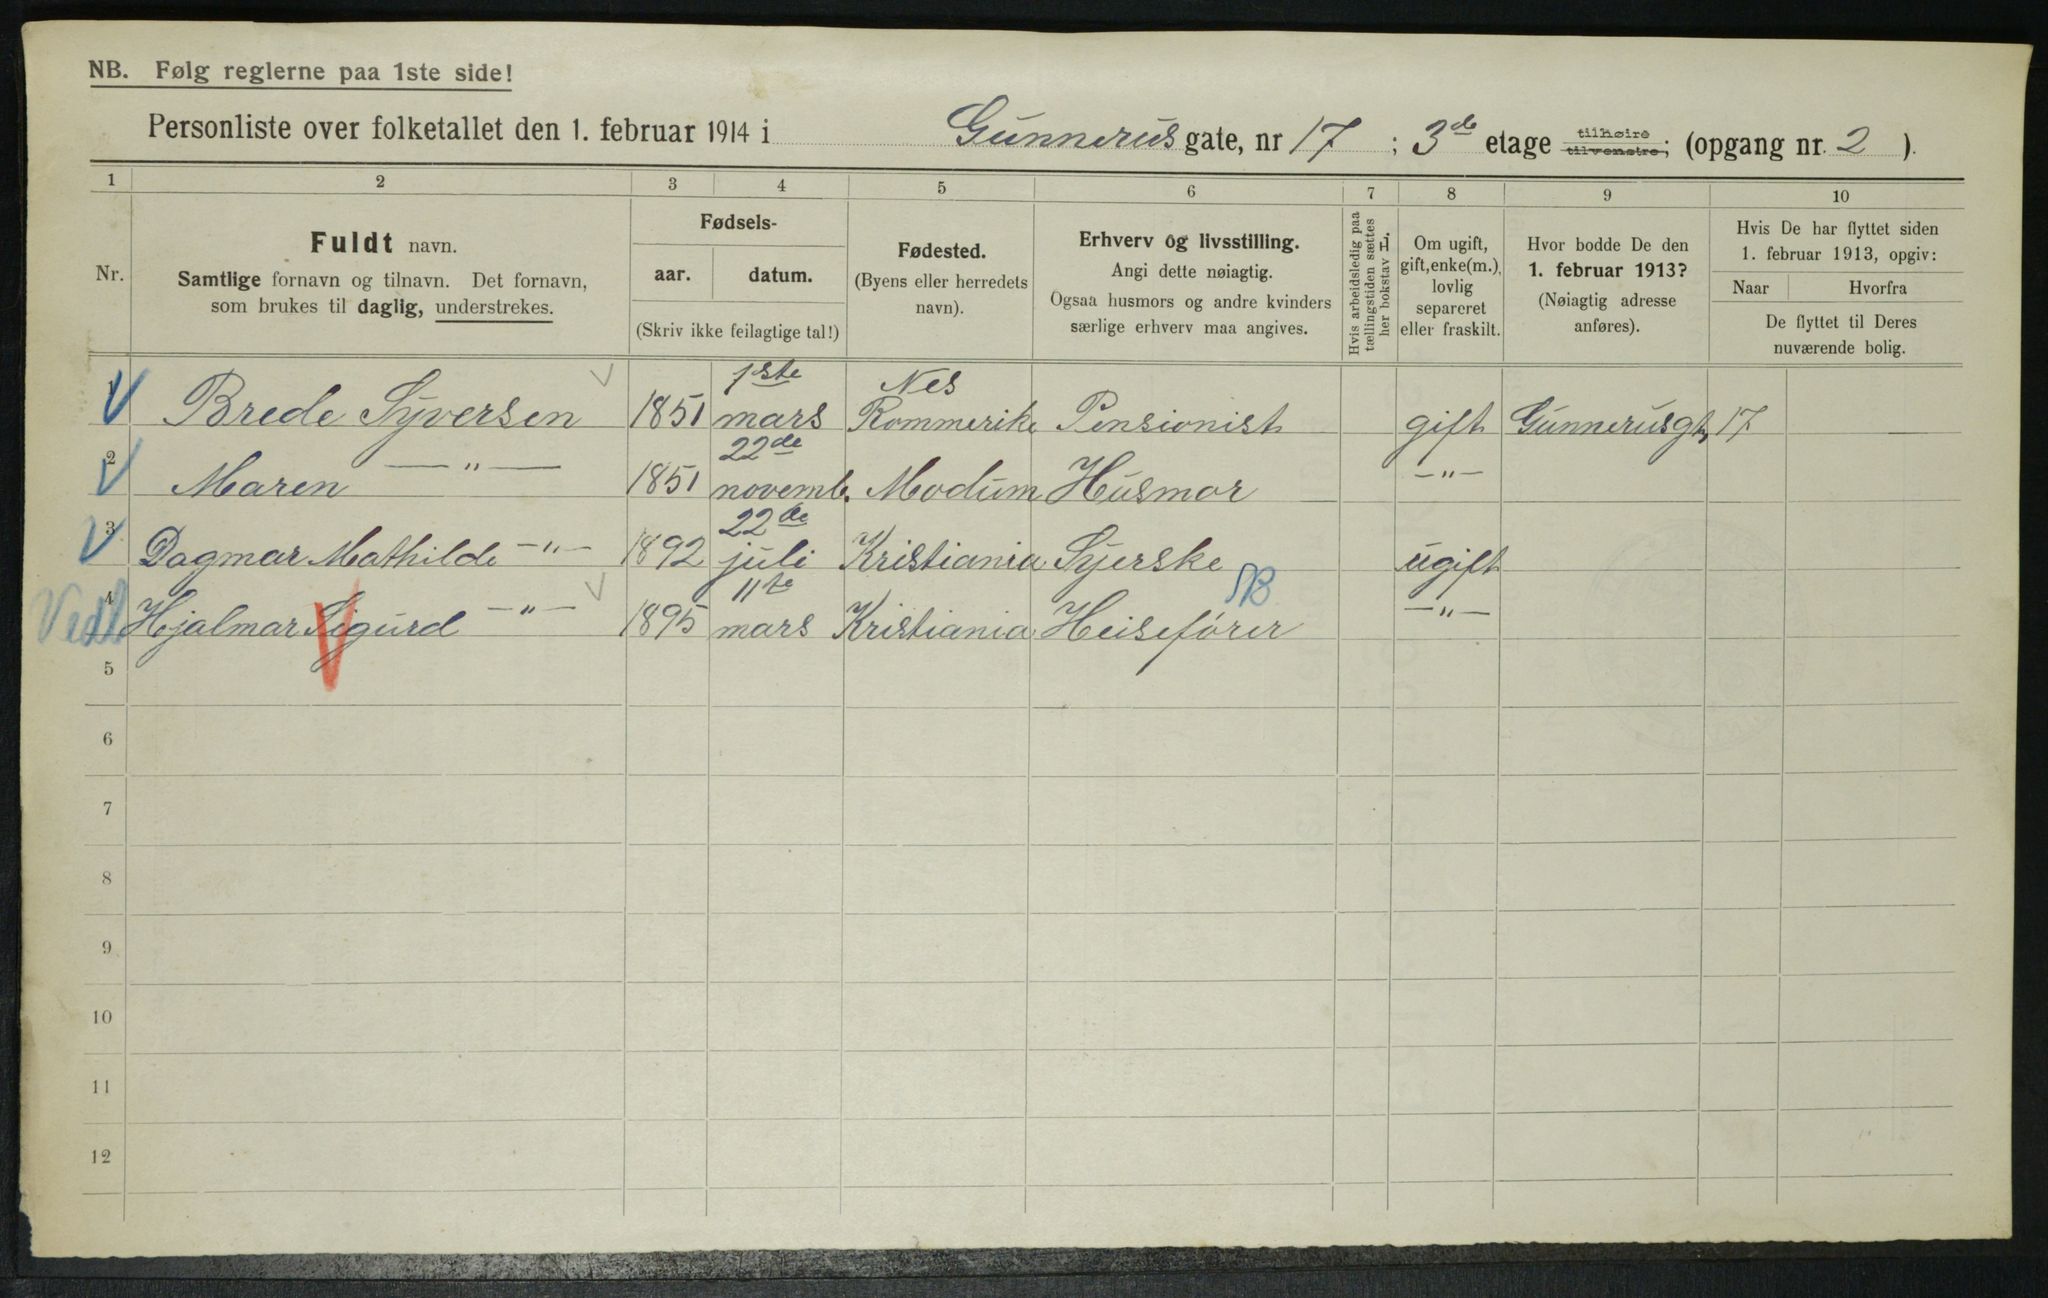 NB. Følg reglerne paa 1ste side!
Personliste over folketallet den 1. februar 1914 i Gunnerus gate, nr 17 ; 3de etage tilhøire tilvenstre; (opgang nr. 2 ).
1 2 3 4 5 6 7 8 9 10
Nr.
Fuldt navn.
Samtlige fornavn og tilnavn. Det fornavn,
som brukes til daglig, understrekes.
Fødsels-
aar. datum.
(Skriv ikke feilagtige tal!)
Fødested.
(Byens eller herredets
navn).
Erhverv og livsstilling.
Angi dette nøiagtig.
Ogsaa husmors og andre kvinders
særlige erhverv maa angives.
Hvis arbeidsledig paa
tællingstiden sættes
her bokstav L.
Om ugift,
gift, enke(m.),
lovlig
separeret
eller fraskilt.
Hvor bodde De den
1. februar 1913?
(Nøiagtig adresse
anføres).
Hvis De har flyttet siden
1. februar 1913, opgiv:
Naar Hvorfra
De flyttet til Deres
nuværende bolig.
1ste Nes
1 Brede Syversen 1851 mars Rommerike Pensionist gift Gunnerusgt, 17
22de
2 Maren —"— 1851 novemb. Modum Husmor —"—
22de
3 Dagmar Mathilde —"— 1892 juli Kristiania Syerske ugift
11te
4 Hjalmar Sigurd —"— 1895 mars Kristiania Heisefører —"—
5
6
7
8
9
10
11
12